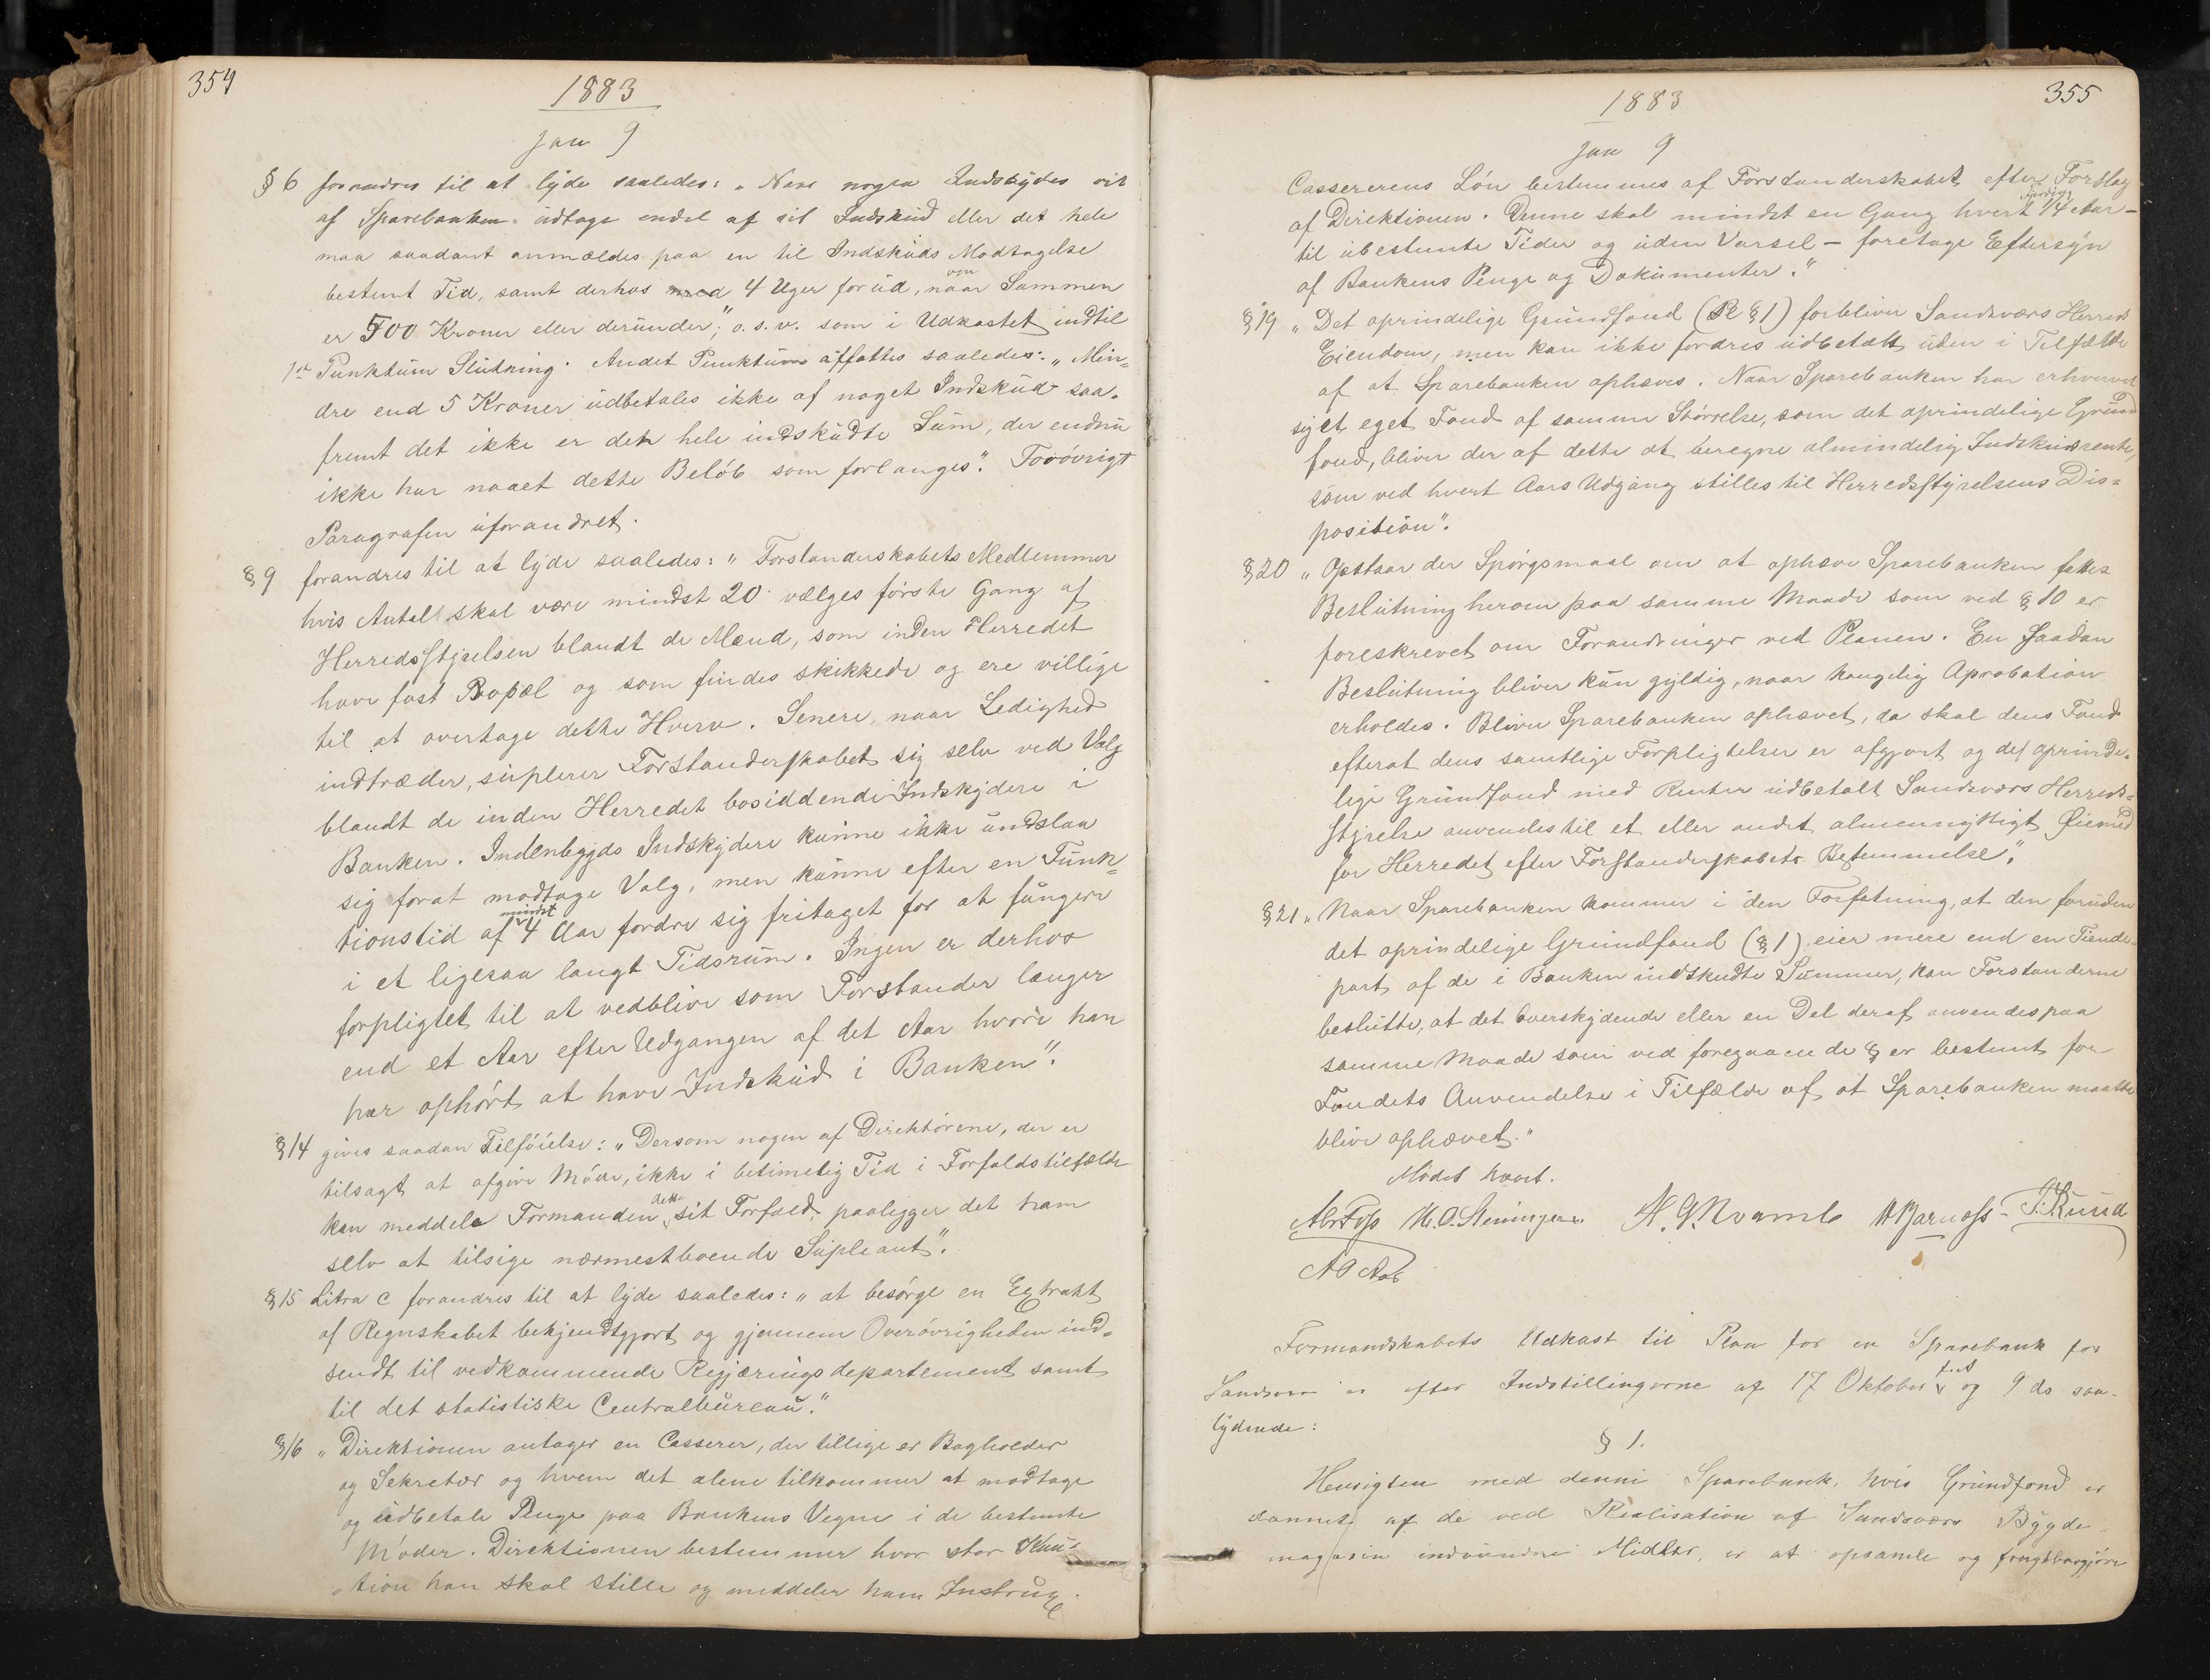 354
1883
Jan 9
§ 6 forandres til at lyde saaledes: „Naar nogen Indskyder vil
af Sparebanken udtage endel af sit Indskud eller det hele
maa saadant anmældes paa en til Indskuds Modtagelse
bestemt Tid, samt derhos med 4 Uger forud, naar om Summen
er 500 Kroner eller derunder", o. s. v. som i Udkastet indtil
1ste Punktum Slutning. Andet Punktum affattes saaledes: „Min-
dre end 5 Kroner udbetales ikke af noget Indskud saa-
fremt det ikke er den hele indskudte Sum, der endnu
ikke har naaet dette Beløb som forlanges". Forøvrigt
Paragrafen uforandret.
§ 9 forandres til at lyde saaledes: „Forstanderskabets Medlemmer
hvis Antal skal være mindst 20 vælges første Gang af
Herredsstyrelsen blandt de Mænd, som inden Herredet
have fast Bopæl og som findes skikkede og ere villige
til at overtage dette Hverv. Senere, naar Ledighed
indtræder, suplerer Forstanderskabet sig selv ved Valg
blandt de inden Herredet bosiddende Indskydere i
Banken. Indenbygds Indskydere kunne ikke undslaa
sig forat modtage Valg, men kunne efter en Funk-
tionstid af mindst 4 Aar fordre sig fritaget for at fungere
i et ligesaa langt Tidsrum. Ingen er derhos
forpligtet til at vedblive som Forstander længer
end et Aar efter Udgangen af det Aar hvori han
har ophørt at have Indskud i Banken".
§ 14 gives saadan Tilføielse: „Dersom nogen af Direktørene, der er
tilsagt at afgive Møde, ikke i betimelig Tid i Forfaldstilfælde
kan meddele Formanden dette sit Forfald, paaligger det ham
selv at tilsige nærmestboende Supleant".
§ 15 Litra c forandres til at lyde saaledes: „at besørge en Extrakt
af Regnskabet bekjendtgjort og gjennem Overøvrigheden ind-
sendt til vedkommende Regjæringsdepartement samt
til det statistiske Centralbureau."
§ 16 „Direktionen antager en Casserer, der tillige er Bogholder
og Sekretær og hvem det alene tilkommer at modtage
og udbetale Penge paa Bankens Vegne i de bestemte
Møder. Direktionen bestemmer hvor stor Kau-
tion han skal stille og meddeler ham Instrux.
355
1883
Jan 9
Cassererens Løn bestemmes af Forstanderskabet efter Forslag
af Direktionen. Denne skal mindst en Gang hvert 1/4 Aar –
til ubestemte Tider og uden Varsel – foretage Eftersyn
af Bankens Penge og Dokumenter."
§ 19 „Det oprindelige Grundfond (§ 1) forbliver Sandsværs Herreds
Eiendom, men kan ikke fordres udbetalt uden i Tilfælde
af at Sparebanken ophæves. Naar Sparebanken har erhvervet
sig et eget Fond af samme Størrelse, som det oprindelige Grund
fond, bliver der af dette at beregne almindelig Indskudsrente,
som ved hvert Aars Udgang stilles til Herredsstyrelsens Dis-
position".
§ 20 „Opstaar der Spørgsmaal om at ophæve Sparebanken fattes
Beslutning herom paa samme Maade som ved § 10 er
foreskrevet om Forandringer ved Planen. En saadan
Beslutning bliver kun gyldig, naar kongelig Aprobation
erholdes. Bliver Sparebanken ophævet, da skal dens Fond
efterat dens samtlige Forpligtelser er afgjort og det oprinde-
lige Grundfond med Renter udbetalt Sandsværs Herreds-
styrelse anvendes til et eller andet almennyttigt Øiemed
for Herredet efter Forstanderskabets Bestemmelse".
§ 21 „Naar Sparebanken kommer i den Forfatning, at den foruden
det oprindelige Grundfond (§ 1), eier mere end en Tiende-
part af de i Banken indskudte Summer, kan Forstanderne
beslutte, at det overskydende eller en Del deraf anvendes paa
samme Maade som ved foregaaende § er bestemt for
Fondets Anvendelse i Tilfælde af at Sparebanken maatte
blive ophævet."
Mødet hævet.
H. O. Steninger. H. G. Kvamb
Formandskabets Udkast til Plan for en Sparebank for
Sandsvær er efter Indstillingerne af 17 Oktober og 9 ds saa-
lydende:
§ 1.
Hensigten med denne Sparebank, hvis Grundfond er
dannet af de ved Realisation af Sandsværs Bygde-
magasin indvundne Midler, er at opsamle og frugtbargjøre